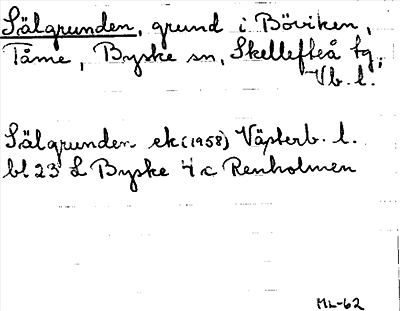 Sälgrunden, grund i Böviken,
Tåme, Byske sn, Skellefteå tg,
Vb. l.
Sälgrunden ek (1958) Västerb. l.
bl 23 L Byske 4 c Renholmen
ML-62